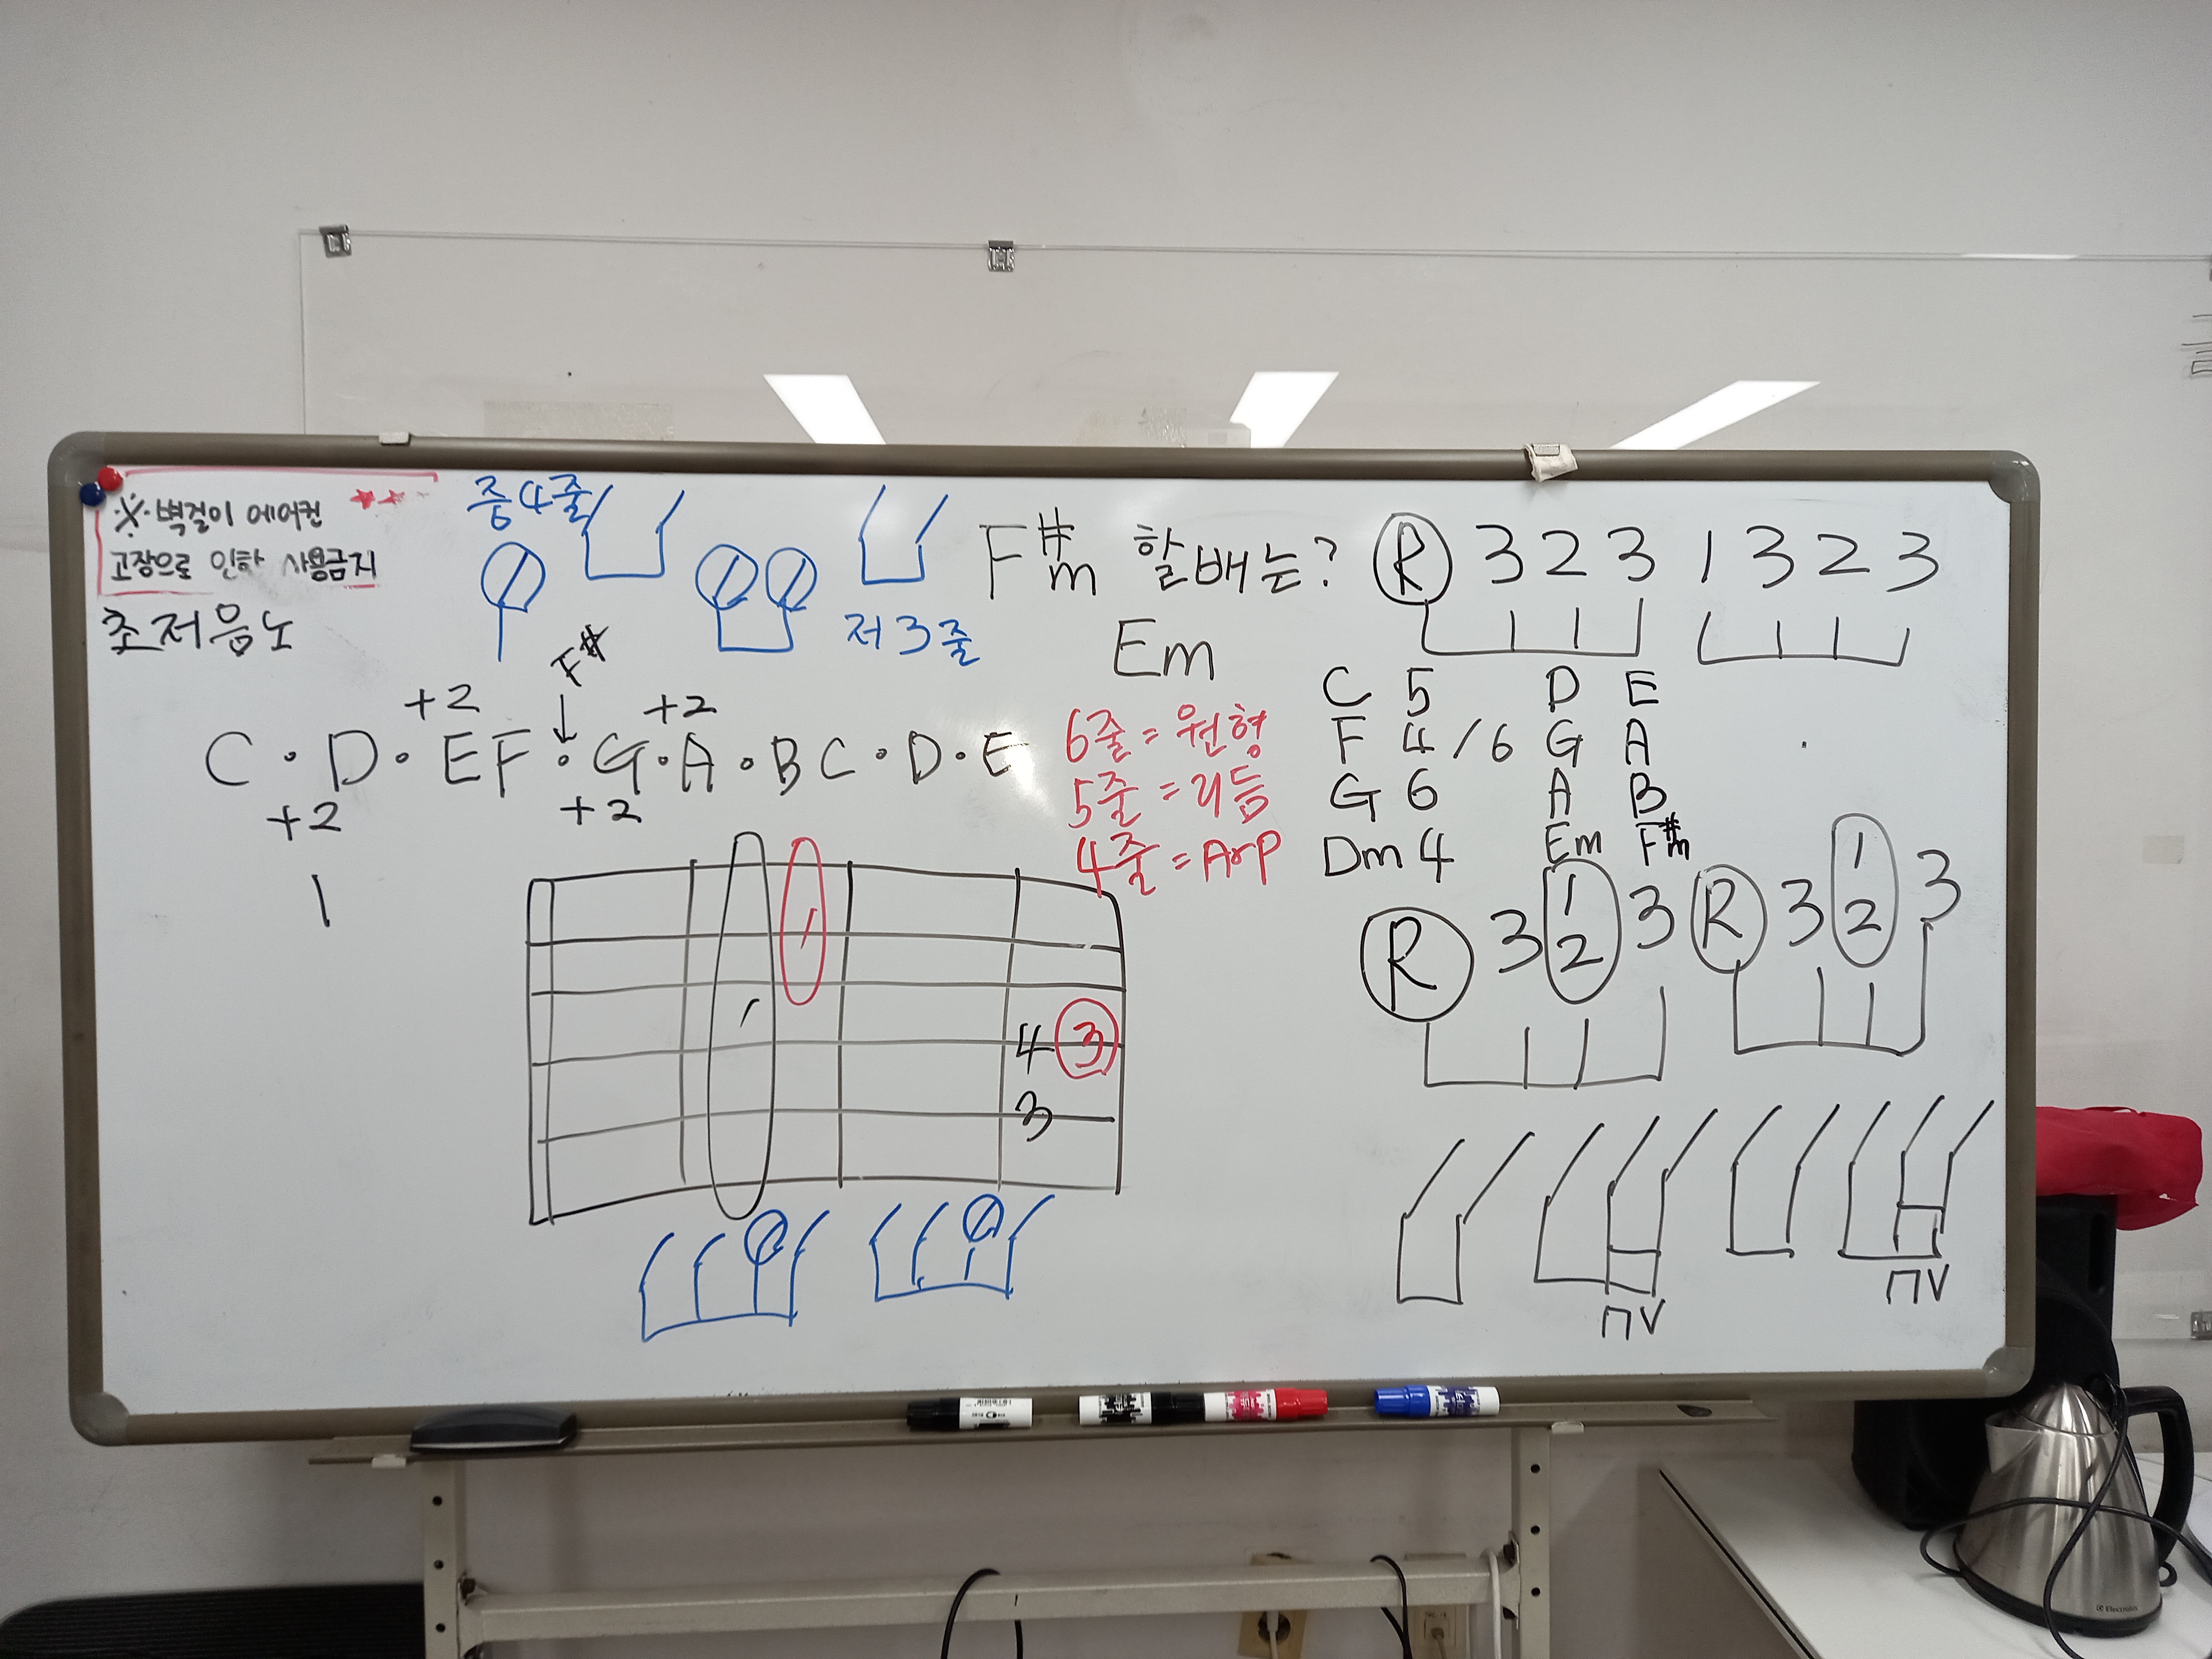 ※ 벽걸이 에어컨
고장으로 인하 사용금지
초저음노
중4줄
저3줄
F#m 할배는?
Em
R 3 2 3 1 3 2 3
F#
+2 +2
C · D · E F · G · A · B C · D · E
+2 +2
1
6줄 = 원형
5줄 = 리듬
4줄 = Arp
C 5 D E
F 4/6 G A
G 6 A B
Dm 4 Em F#m
1
1
4 3
3
R 3 1 2 3 R 3 1 2 3
ΠV ΠV
Electrolux